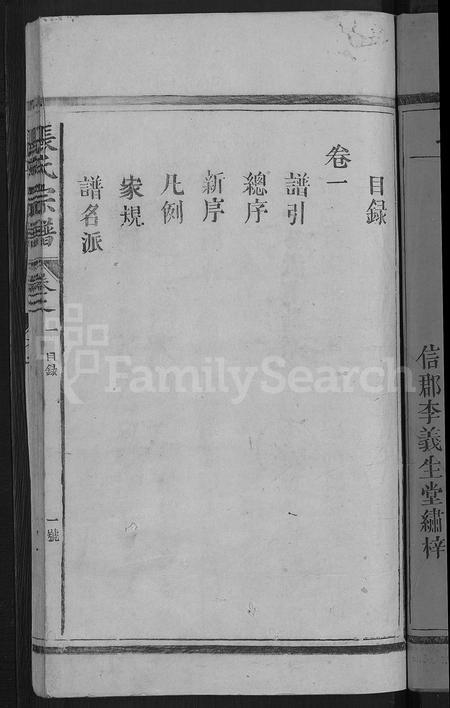 信郡李義生堂繡梓
目録
卷一
譜引
總序
新序
凡例
家規
譜名派
張氏宗譜
卷之一
目録
一號
FamilySearch